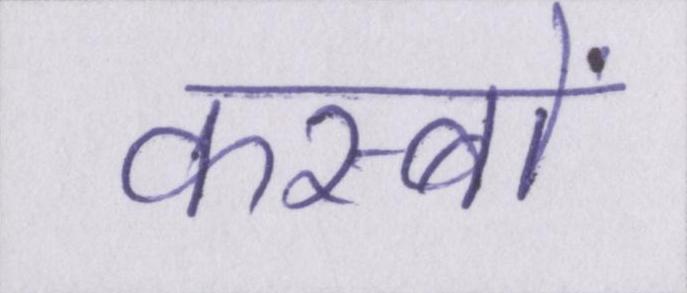 कस्बों